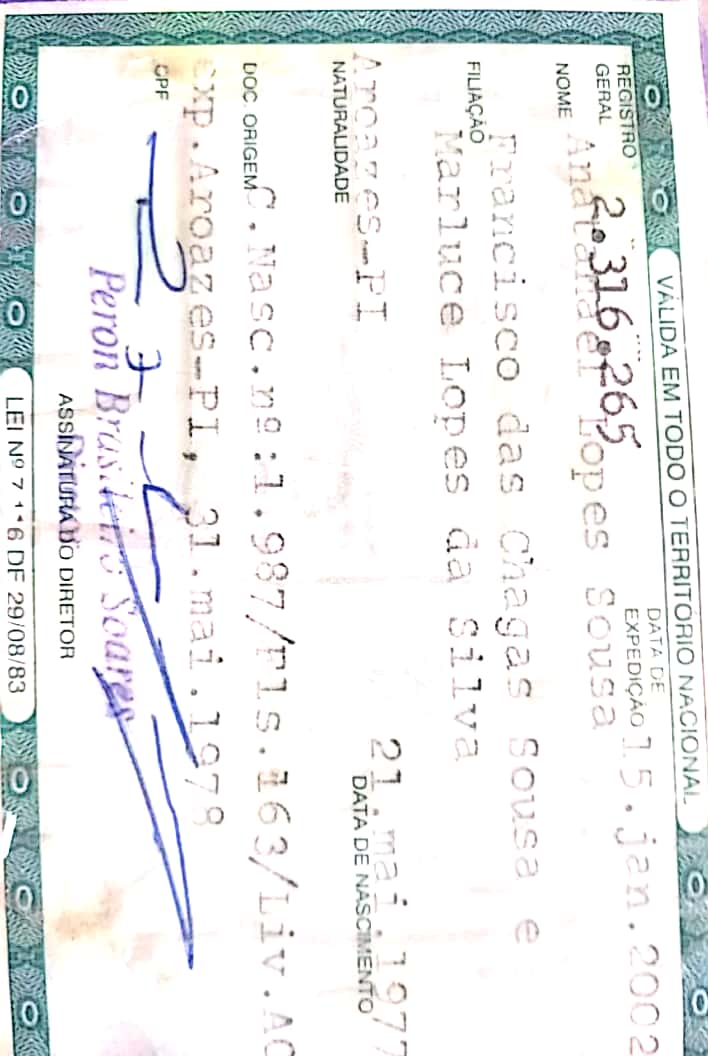 VÁLIDA EM TODO O TERRITÓRIO NACIONAL
REGISTRO GERAL 2.316.265 DATA DE EXPEDIÇÃO 15.jan.2002
NOME Anatanael Lopes Sousa
FILIAÇÃO Francisco das Chagas Sousa e
Marluce Lopes da Silva
Aroazes-PI 21.mai.1977
NATURALIDADE DATA DE NASCIMENTO
DOC. ORIGEM C.Nasc.nº:1.987/Fls.163/Liv.A0
Exp.Aroazes-PI, 31.mai.1978
CPF
Peron Brasileiro Soares
ASSINATURA DO DIRETOR
LEI Nº 7.116 DE 29/08/83